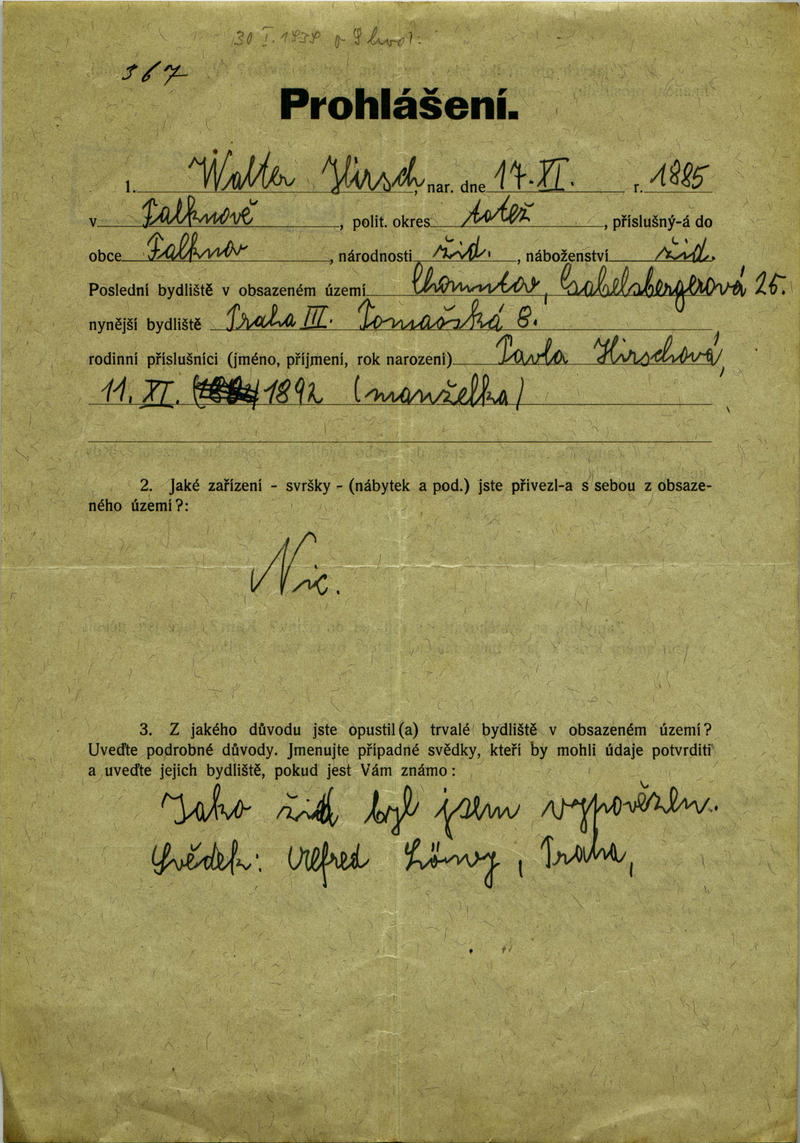 30 I. 1939
367
Prohlášení.
1. Walter Hirsch, nar. dne 17. XI. r. 1885
v Falknově, polit. okres totéž, příslušný-á do
obce Falknov, národnosti žid., náboženství žid.
Poslední bydliště v obsazeném území Chomutov, Gabelsbergerová 25.
nynější bydliště Praha III. Tomášská 8.
rodinní příslušníci (jméno, příjmení, rok narození) Pavla Hirschová,
11. XI. 1892 (manželka)
2. Jaké zařízení - svršky - (nábytek a pod.) jste přivezl-a s sebou z obsaze-
ného území?:
Nic.
3. Z jakého důvodu jste opustil(a) trvalé bydliště v obsazeném území?
Uveďte podrobné důvody. Jmenujte případné svědky, kteří by mohli údaje potvrditi
a uveďte jejich bydliště, pokud jest Vám známo:
Jako žid byl jsem vypovězen.
Svědek: Alfred Löwy, Praha,